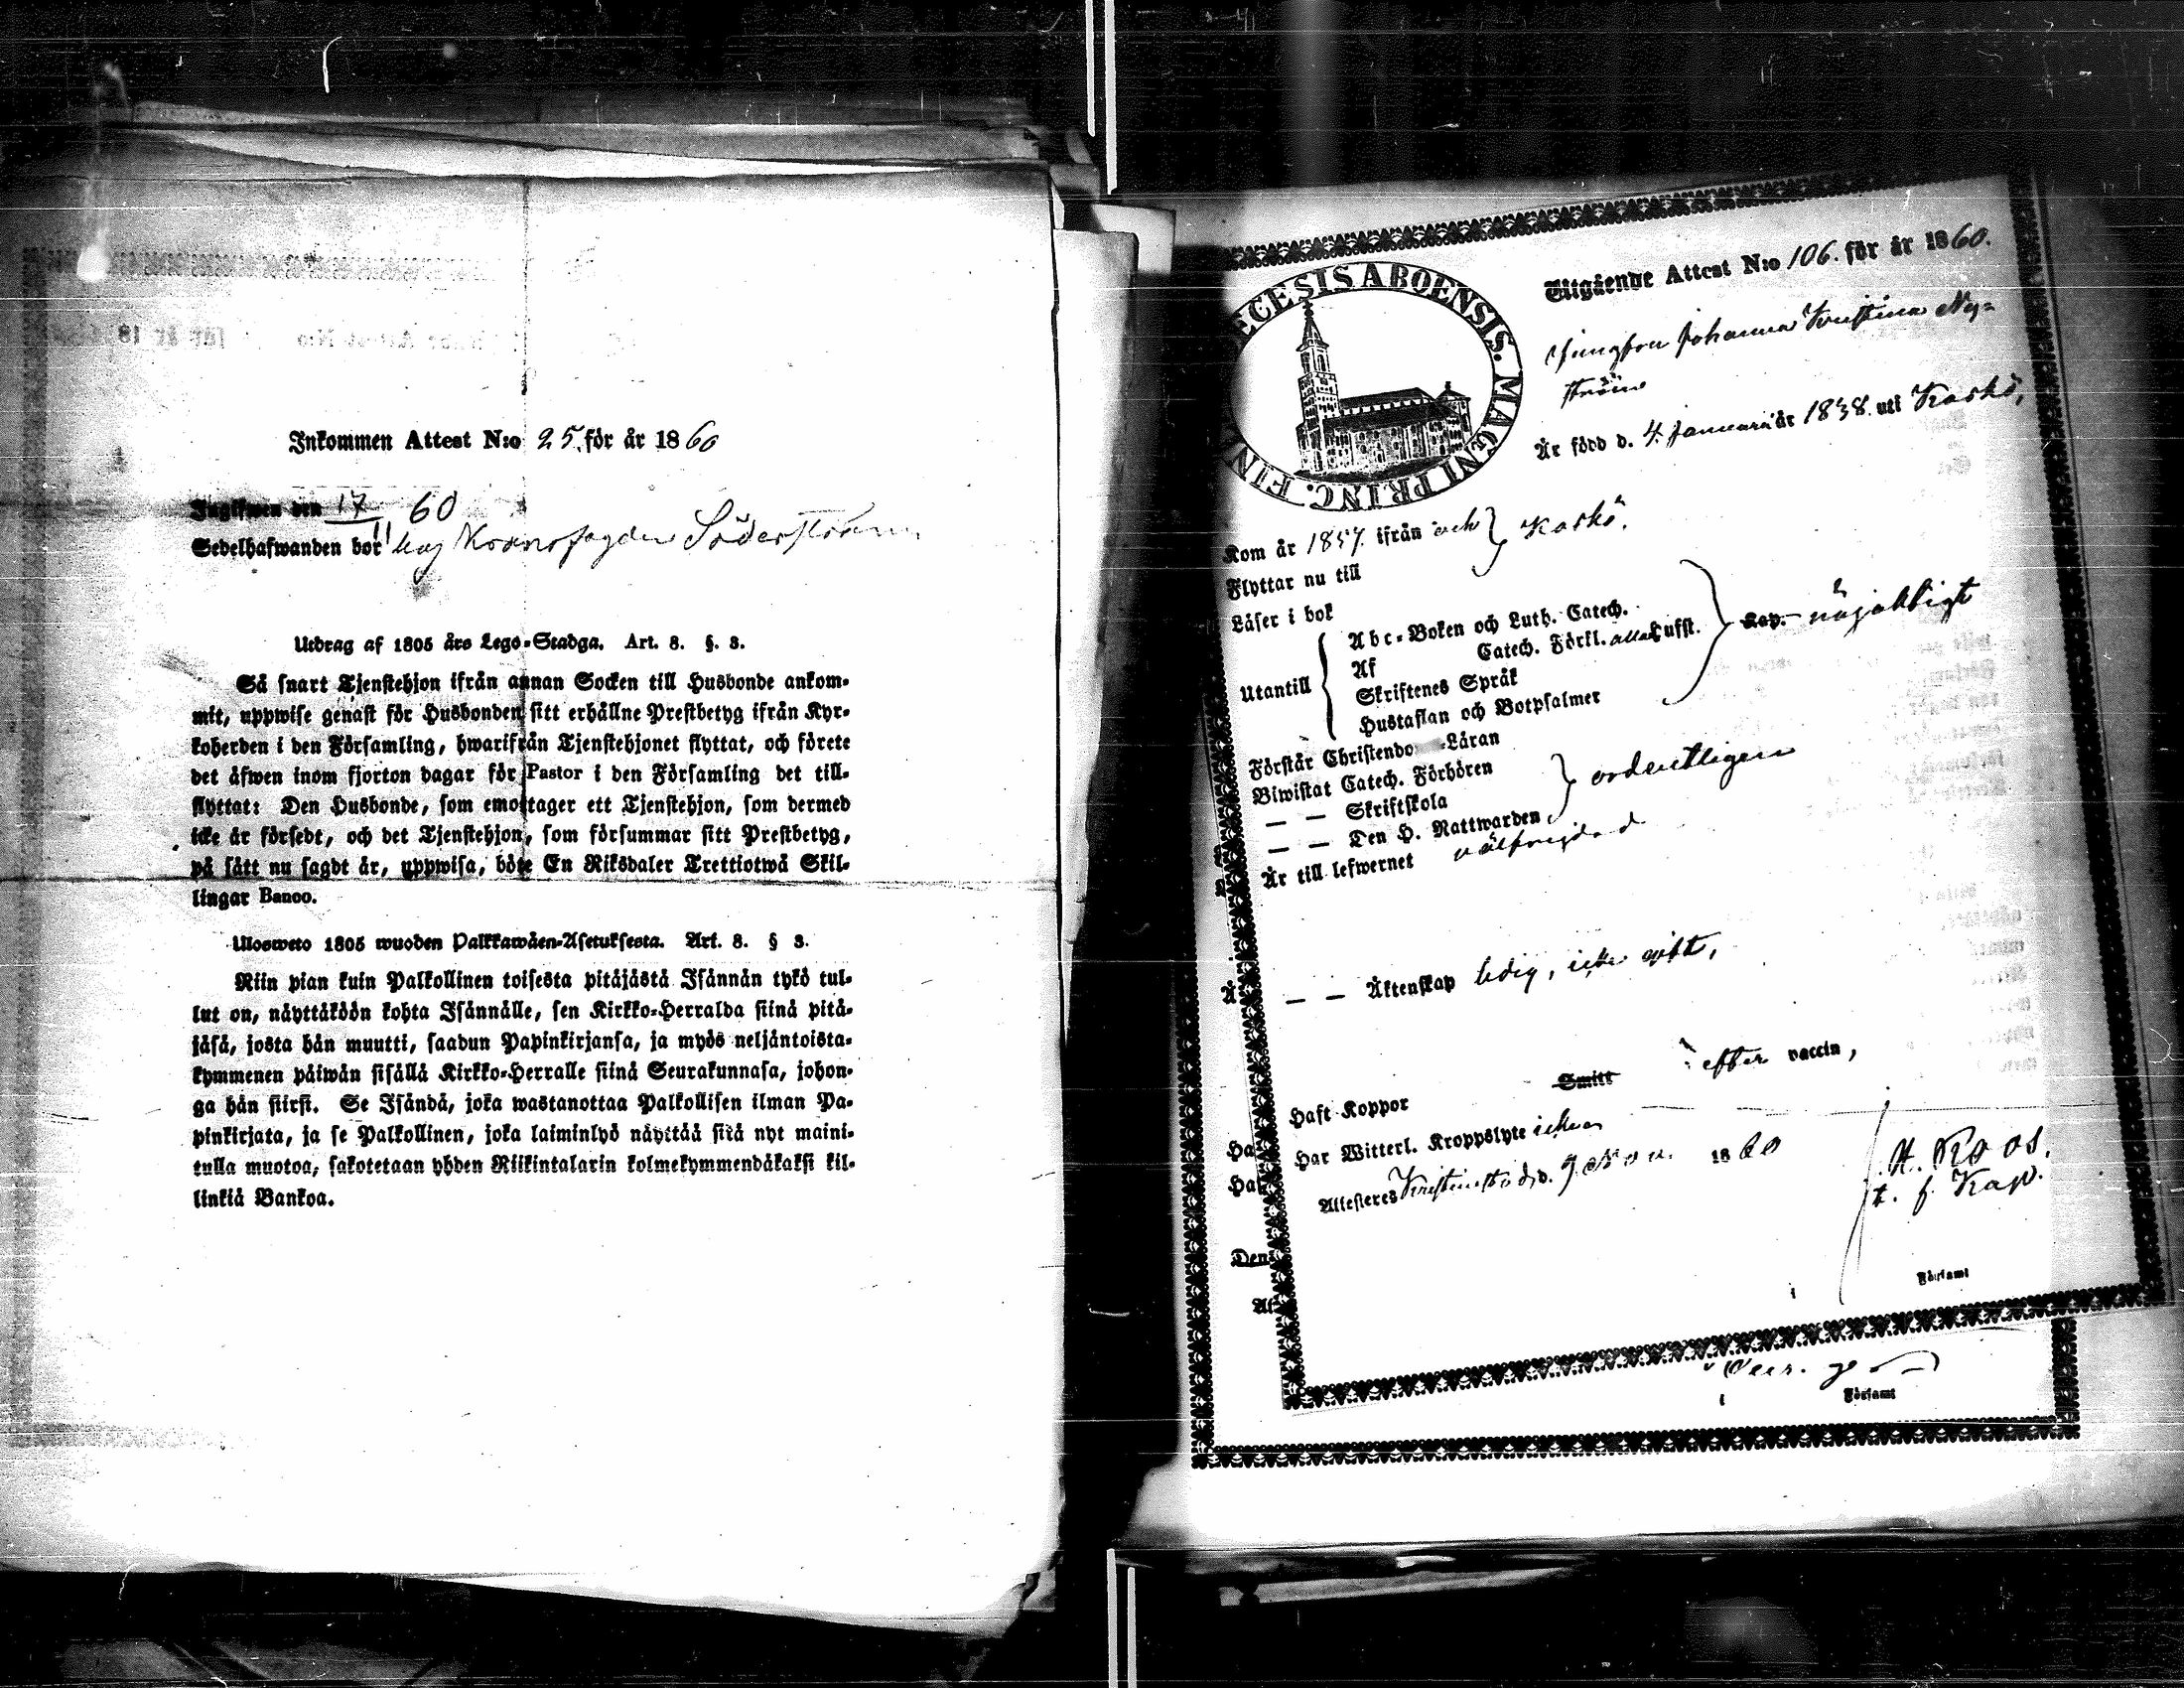 Inkommen Attest N:o 25. för år 1860
Ingifwen den 17/11 60
Sedelhafwanden bor hos Kronofogden Söderström
Utdrag af 1805 års Lego-Stadga. Art. 8. §. 3.
Så snart Tjenstehjon ifrån annan Socken till Husbonde ankom-
mit, uppwise genast för Husbonden sitt erhållne Prestbetyg ifrån Kyr-
koherden i den Församling, hwarifrån Tjenstehjonet flyttat, och förete
det äfwen inom fjorton dagar för Pastor i den Församling det till-
flyttat: Den Husbonde, som emottager ett Tjenstehjon, som dermed
icke är försedt, och det Tjenstehjon, som försummar sitt Prestbetyg,
på sätt nu sagdt är, uppwisa, böte En Riksdaler Trettiotwå Skil-
lingar Banco.
Ulosweto 1805 wuoden Palkkawäen-Asetuksesta. Art. 8. § 3.
Niin pian kuin Palkollinen toisesta pitäjästä Isännän tykö tul-
lut on, näyttäköön kohta Isännälle, sen Kirkko-Herralda siinä pitä-
jäsä, josta hän muutti, saadun Papinkirjansa, ja myös neljäntoista-
kymmenen päiwän sisällä Kirkko-Herralle siinä Seurakunnasa, johon-
ga hän siirsi. Se Isändä, joka wastanottaa Palkollisen ilman Pa-
pinkirjata, ja se Palkollinen, joka laiminlyö näyttää sitä nyt maini-
tulla muotoa, sakotetaan yhden Riikintalarin kolmekymmendäkaksi kil-
linkiä Bankoa.
ECESIS ABOENSIS. MAGNI PRINC. FIN
Utgående Attest N:o 106. för år 1860.
Jungfru Johanna Kristina Ny-
ström
Är född d. 4. Januari år 1838. uti Kaskö,
Kom år 1857. ifrån och } Kaskö.
Flyttar nu till
Läser i bok
Utantill { Abc-Boken och Luth. Catech.
Af Catech. Förkl. alla Lufst. } Kap. nöjaktigt
Skriftenes Språk
Hustaflan och Botpsalmer
Förstår Christendo -Läran
Biwistat Catech. Förhören
— — Skriftskola } ordentligen
— — Den H. Nattwarden
Är till lefwernet välfrejdad
— — Äktenskap ledig, icke gift,
Haft Koppor Smitt efter vaccin,
Har Witterl. Kroppslyte icke
Attesteras Kristinestad d. 9. Nov. 1860
A. Roos.
t. f. Kap.
i Församl
Ä
Ha
Har
Den
At
i Församl